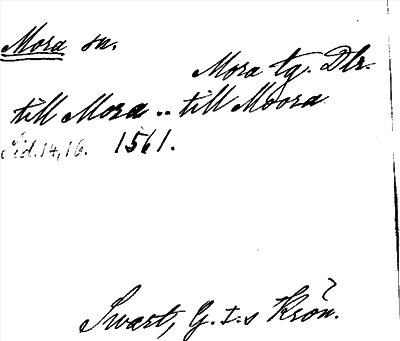 Mora sn.
Mora tg. Dlr.
till Mora .. till Moora
Sid. 14, 16. 1561.
Swart, G. I:s Krön.